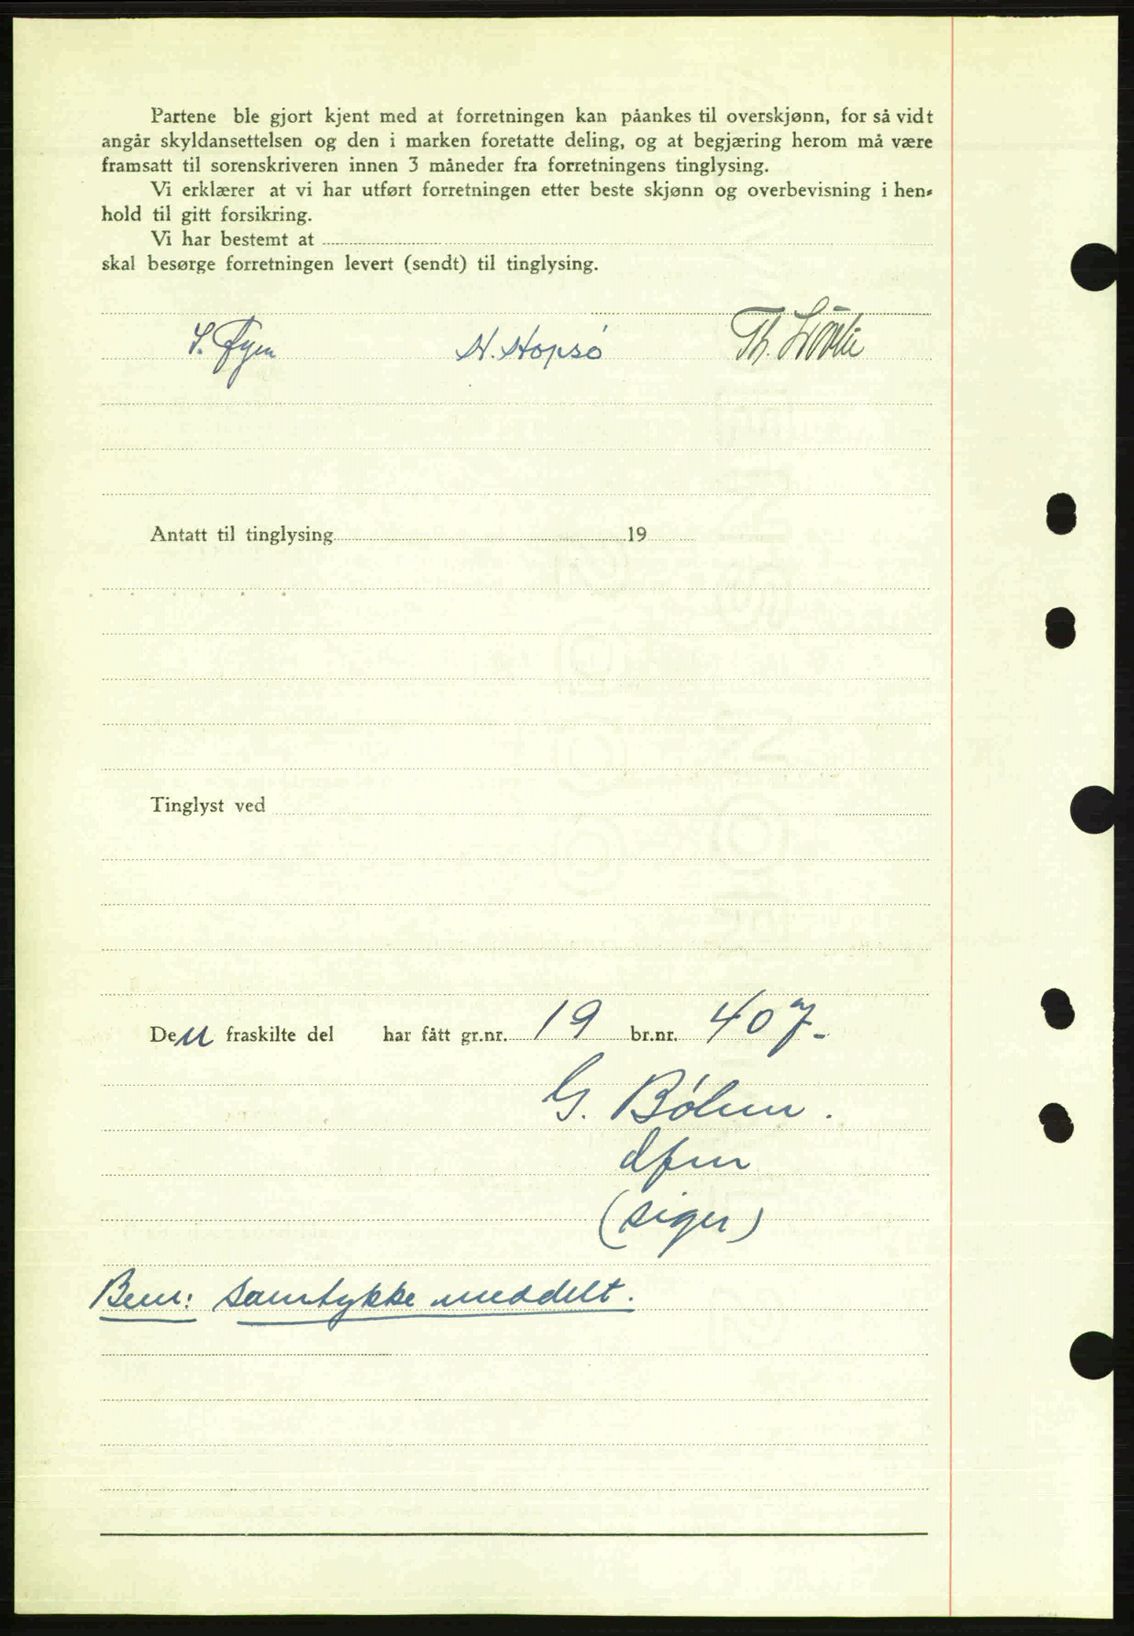 Partene ble gjort kjent med at forretningen kan påankes til overskjønn, for så vidt
angår skyldansettelsen og den i marken foretatte deling, og at begjæring herom må være
framsatt til sorenskriveren innen 3 måneder fra forretningens tinglysing.
Vi erklærer at vi har utført forretningen etter beste skjønn og overbevisning i hen-
hold til gitt forsikring.
Vi har bestemt at
skal besørge forretningen levert (sendt) til tinglysing.
S. Øyen N. Hopsø Th.
Antatt til tinglysing 19
Tinglyst ved
Den fraskilte del har fått gr.nr. 19 br.nr. 407-
G. Böhm.
dfm
(siger)
Bem: Samtykke meddelt.